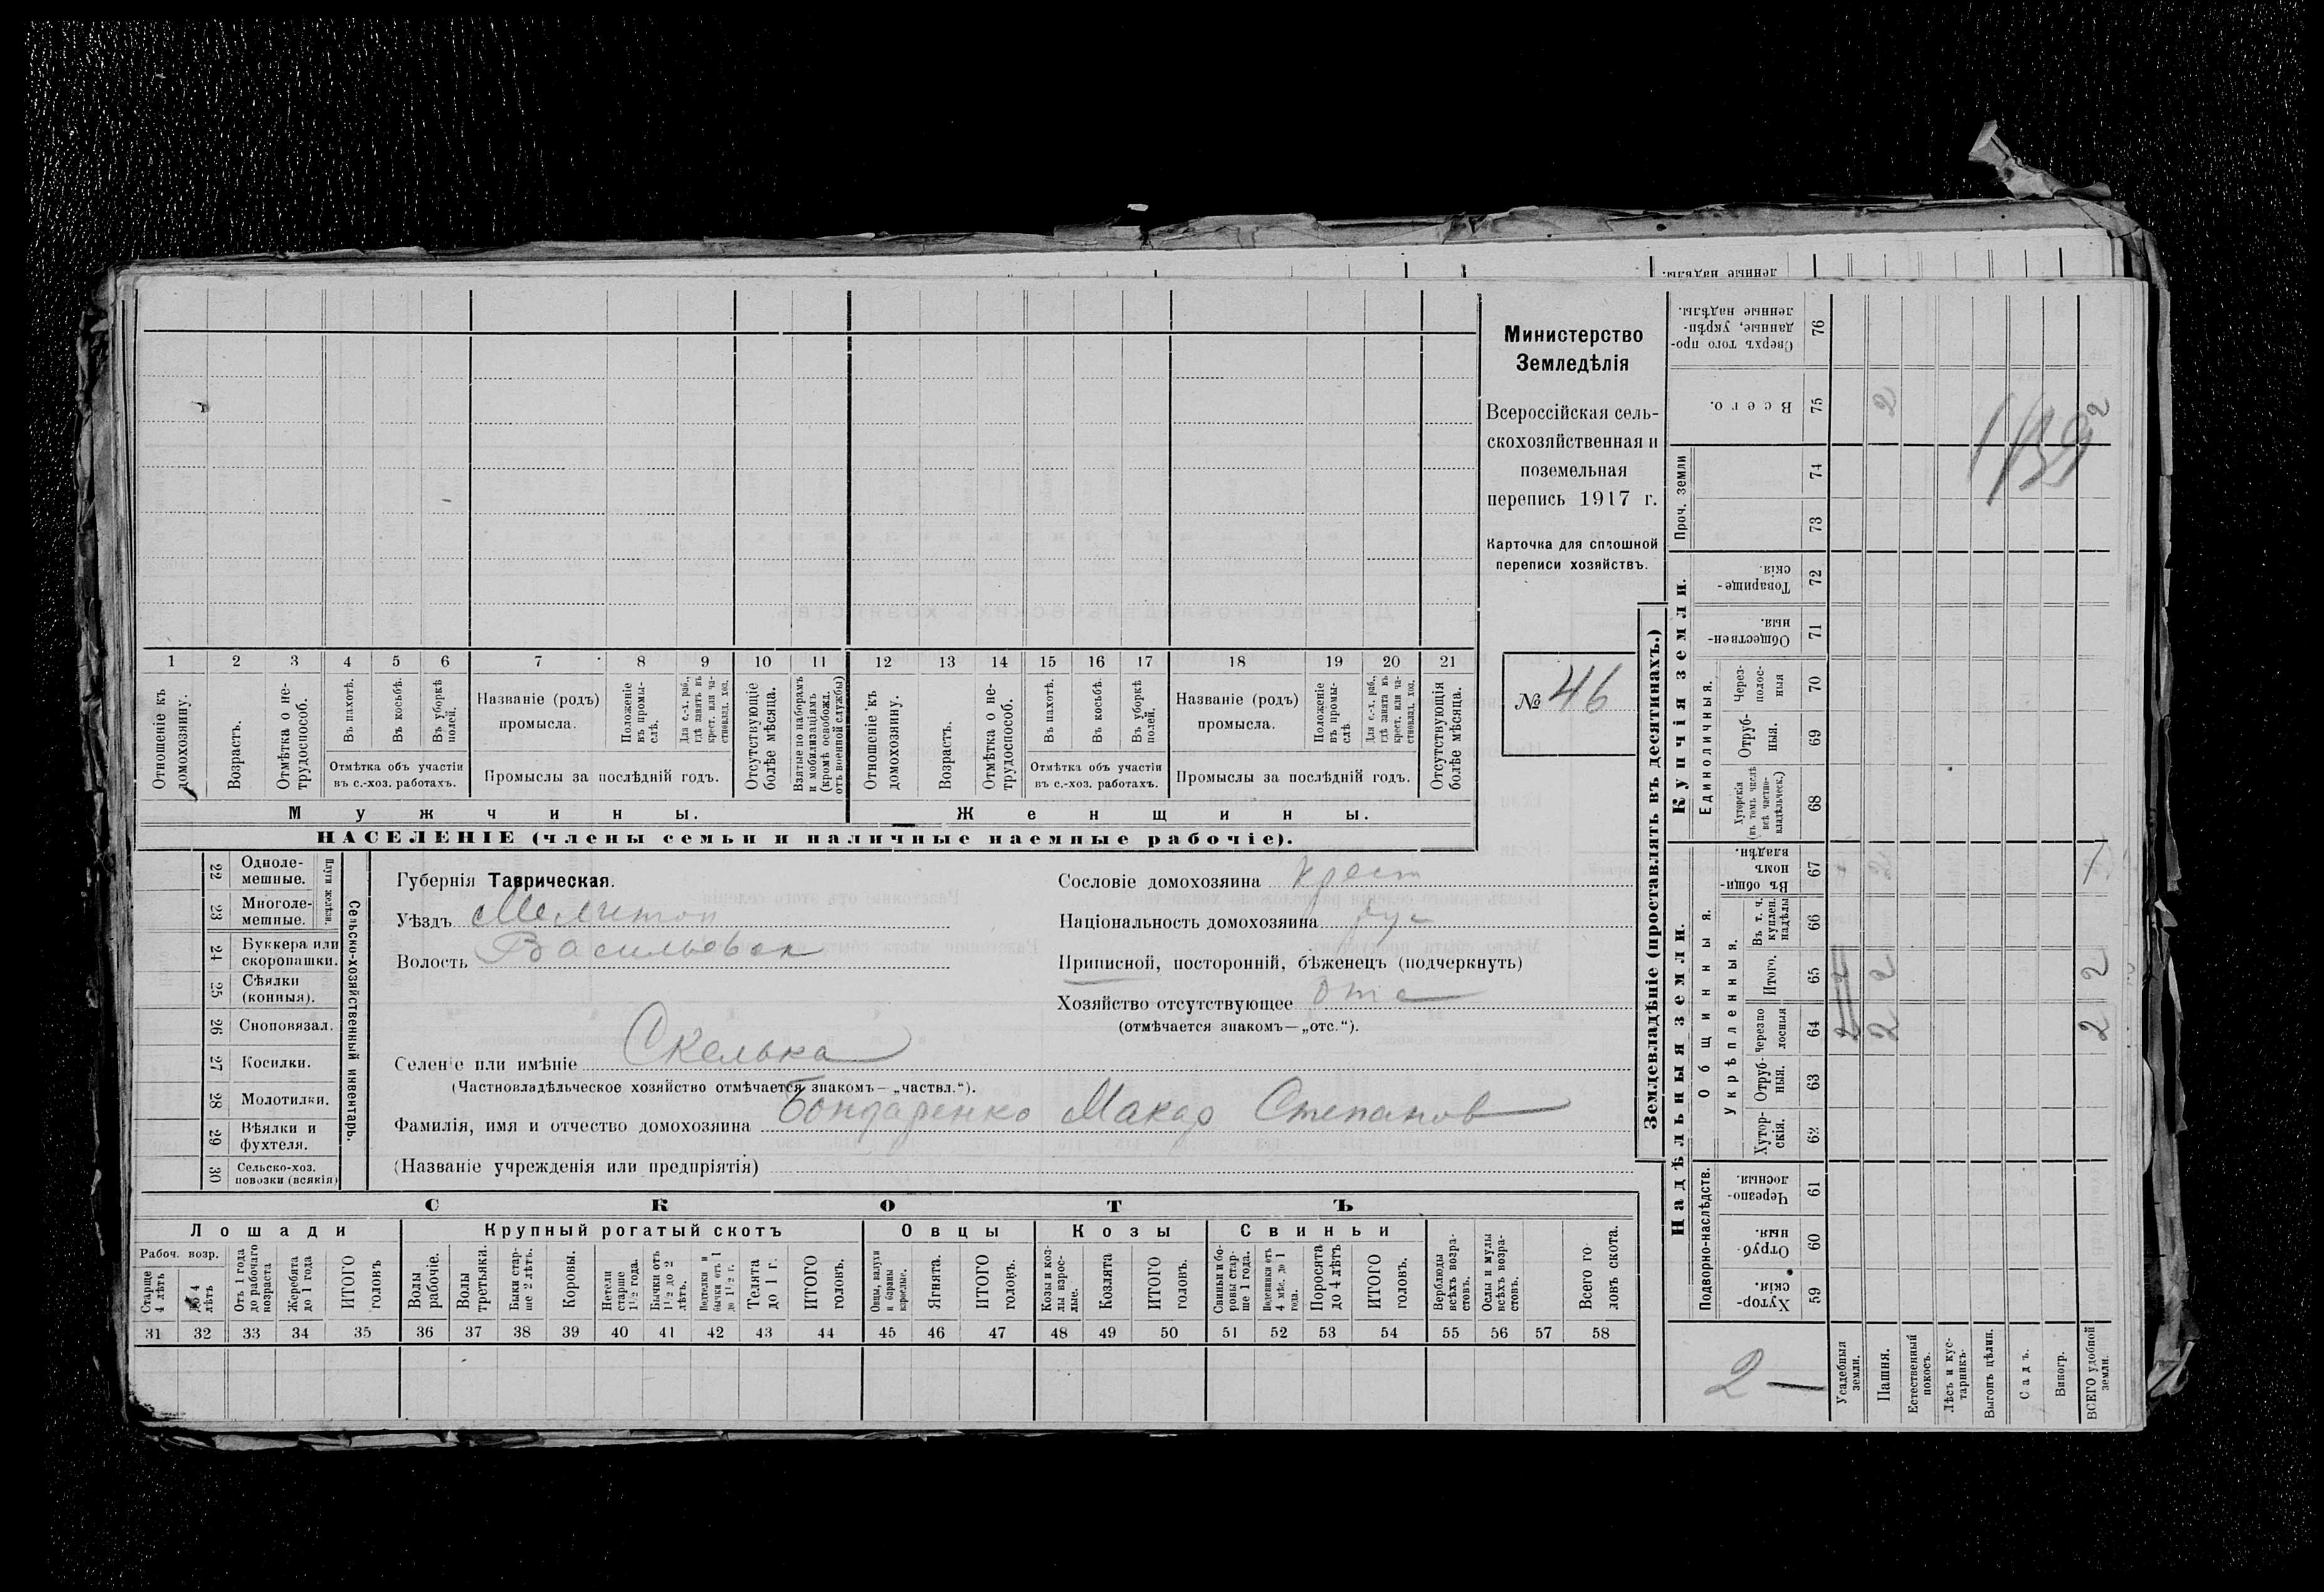 Министерство
Земледѣлія
Всероссійская сель-
скохозяйственная и
поземельная
перепись 1917 г.
Карточка для сплошной
переписи хозяйствъ.
№ 46
1 2 3 4 5 6 7 8 9 10 11 12 13 14 15 16 17 18 19 20 21
Отношеніе къ домохозяину.
Возрастъ.
Отмѣтка о не-трудоспособ.
Въ пахотѣ.
Въ косьбѣ.
Въ уборкѣ полей.
Отмѣтка объ участіи
въ с.-хоз. работахъ.
Названіе (родъ)
промысла.
Положеніе въ промы-слѣ.
Для с.-х. раб., гдѣ занятъ въ крест. или ча-стновлад. хоз.
Промыслы за послѣдній годъ.
Отсутствующіе болѣе мѣсяца.
Взятые по наборамъ и мобилизаціямъ (кромѣ освобожд. отъ военной службы)
Отношеніе къ домохозяину.
Возрастъ.
Отмѣтка о не-трудоспособ.
Въ пахотѣ.
Въ косьбѣ.
Въ уборкѣ полей.
Отмѣтка объ участіи
въ с.-хоз. работахъ.
Названіе (родъ)
промысла.
Положеніе въ промы-слѣ
Для с.-х. раб., гдѣ занята въ крест. или ча-стновлад. хоз.
Промыслы за послѣдній годъ.
Отсутствующія болѣе мѣсяца.
Мужчины.
Женщины.
НАСЕЛЕНІЕ (члены семьи и наличные наемные рабочіе).
22 Одноле-мешные.
23 Многоле-мешные.
Плуги желѣзн.
24 Буккера или скоропашки.
25 Сѣялки (конныя).
26 Сноповязал.
27 Косилки.
28 Молотилки.
29 Вѣялки и фухтеля.
30 Сельско-хоз. повозки (всякія)
Сельско-хозяйственный инвентарь.
Губернія Таврическая.
Уѣздъ Мелитоп
Волость Васильевск
Селеніе или имѣніе Скелька
(Частновладѣльческое хозяйство отмѣчается знакомъ — „частвл.“).
Фамилія, имя и отчество домохозяина Бондаренко Макар Степанов
(Названіе учрежденія или предпріятія)
Сословіе домохозяина крест
Національность домохозяина рус
Приписной, посторонній, бѣженецъ (подчеркнуть)
Хозяйство отсутствующее отс
(отмѣчается знакомъ — „отс.“).
СКОТЪ
Лошади
Крупный рогатый скотъ
Овцы
Козы
Свиньи
Рабоч. возр.
Старше 4 лѣтъ
До 4 лѣтъ
Отъ 1 года до рабочаго возраста
Жеребята до 1 года
ИТОГО головъ
Волы рабочіе.
Волы третьяки.
Быки стар-ше 2 лѣтъ.
Коровы.
Нетели старше 1 1/2 года.
Бычки отъ 1 1/2 до 2 лѣтъ.
Подтелки и бычки отъ 1 до 1 1/2 г.
Телята до 1 г.
ИТОГО головъ.
Овцы, валухи и бараны взрослые.
Ягнята.
ИТОГО головъ.
Козы и коз-лы взрос-лые.
Козлята
ИТОГО головъ.
Свиньи и бо-ровы стар-ше 1 года.
Подсвинки отъ 4 мѣс. до 1 года.
Поросята до 4 лѣтъ
ИТОГО головъ.
Верблюды всѣхъ возра-стовъ.
Ослы и мулы всѣхъ возра-стовъ.
Всего го-ловъ скота.
31 32 33 34 35 36 37 38 39 40 41 42 43 44 45 46 47 48 49 50 51 52 53 54 55 56 57 58
Землевладѣніе (проставлять въ десятинахъ.)
Надѣльныя земли.
Купчія земли.
Проч. земли
Подворно-наслѣдств.
Общинныя.
Укрѣпленныя.
Единоличныя.
Сверхъ того про-данные, укрѣп-ленные надѣлы. 76
Всего. 75
74
73
Товарище-скія. 72
Обществен-ныя. 71
Через-полос-ныя 70
Отруб-ныя. 69
Хуторскія (въ томъ числѣ всѣ частно-владѣльческ.) 68
Въ общи-номъ владѣн. 67
Въ т. ч. куплен. надѣлы 66
Итого. 65
Черезпо-лосныя 64
Отруб-ныя. 63
Хутор-скія. 62
Черезпо-лосныя. 61
Отруб-ныя. 60
Хутор-скія. 59
Усадебныя земли.
Пашня.
Естественный покосъ.
Лѣсъ и кус-тарникъ.
Выгонъ цѣлин.
Садъ.
Виногр.
ВСЕГО удобной земли.
2 2
2 2 2
2 2 2
2 —